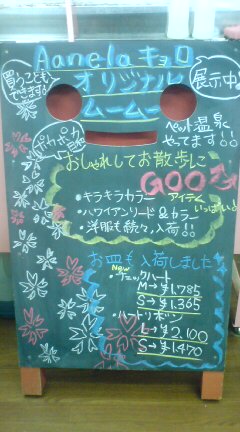 Aanela キョロ
オリジナル
ムームー
買うことも
できます♪
展示中♪
ポカポカ
ペット温泉
やってます!!
おしゃれしてお散歩に
GOOD
アイテム
いっぱいよ
・キラキラカラー
・ハワイアンリード&カラー
・洋服も続々、入荷!!
お皿も入荷しました
New
・チェックハート
M→¥1.785
S→¥1.365
・ハートリボン
L→¥2,100
S→¥1.470